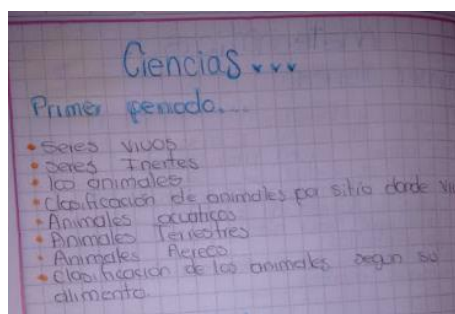 Ciencias...
Primer periodo...
• Seres vivos
• Seres Inertes
• los animales
• Clasificación de animales por sitio donde vi
• Animales acuaticos
• Animales Terrestres
• Animales Aereco
• Clasificacion de los animales segun su
alimento